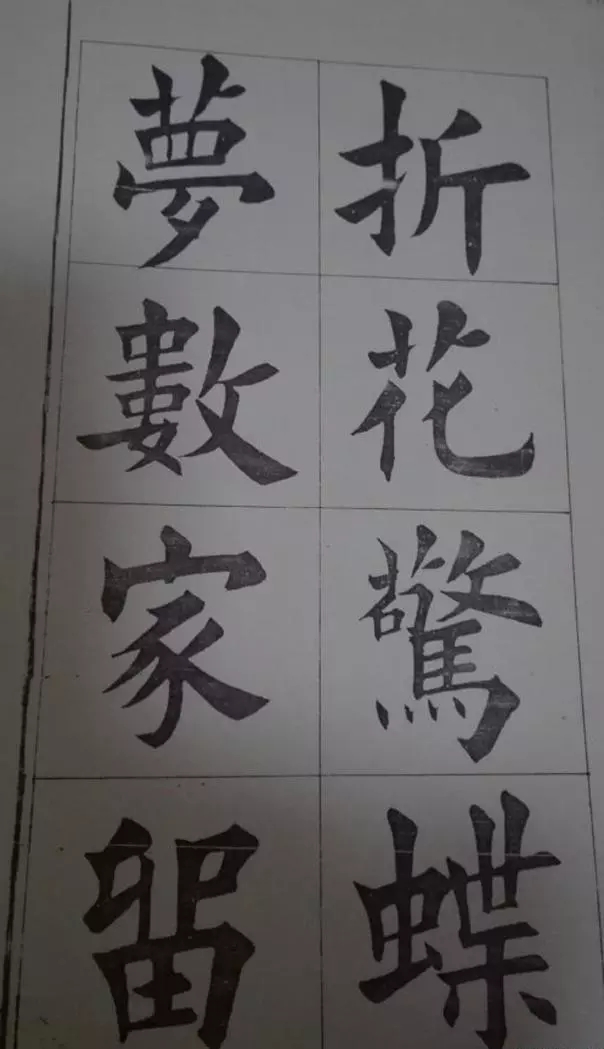 折花驚蝶
夢數家留